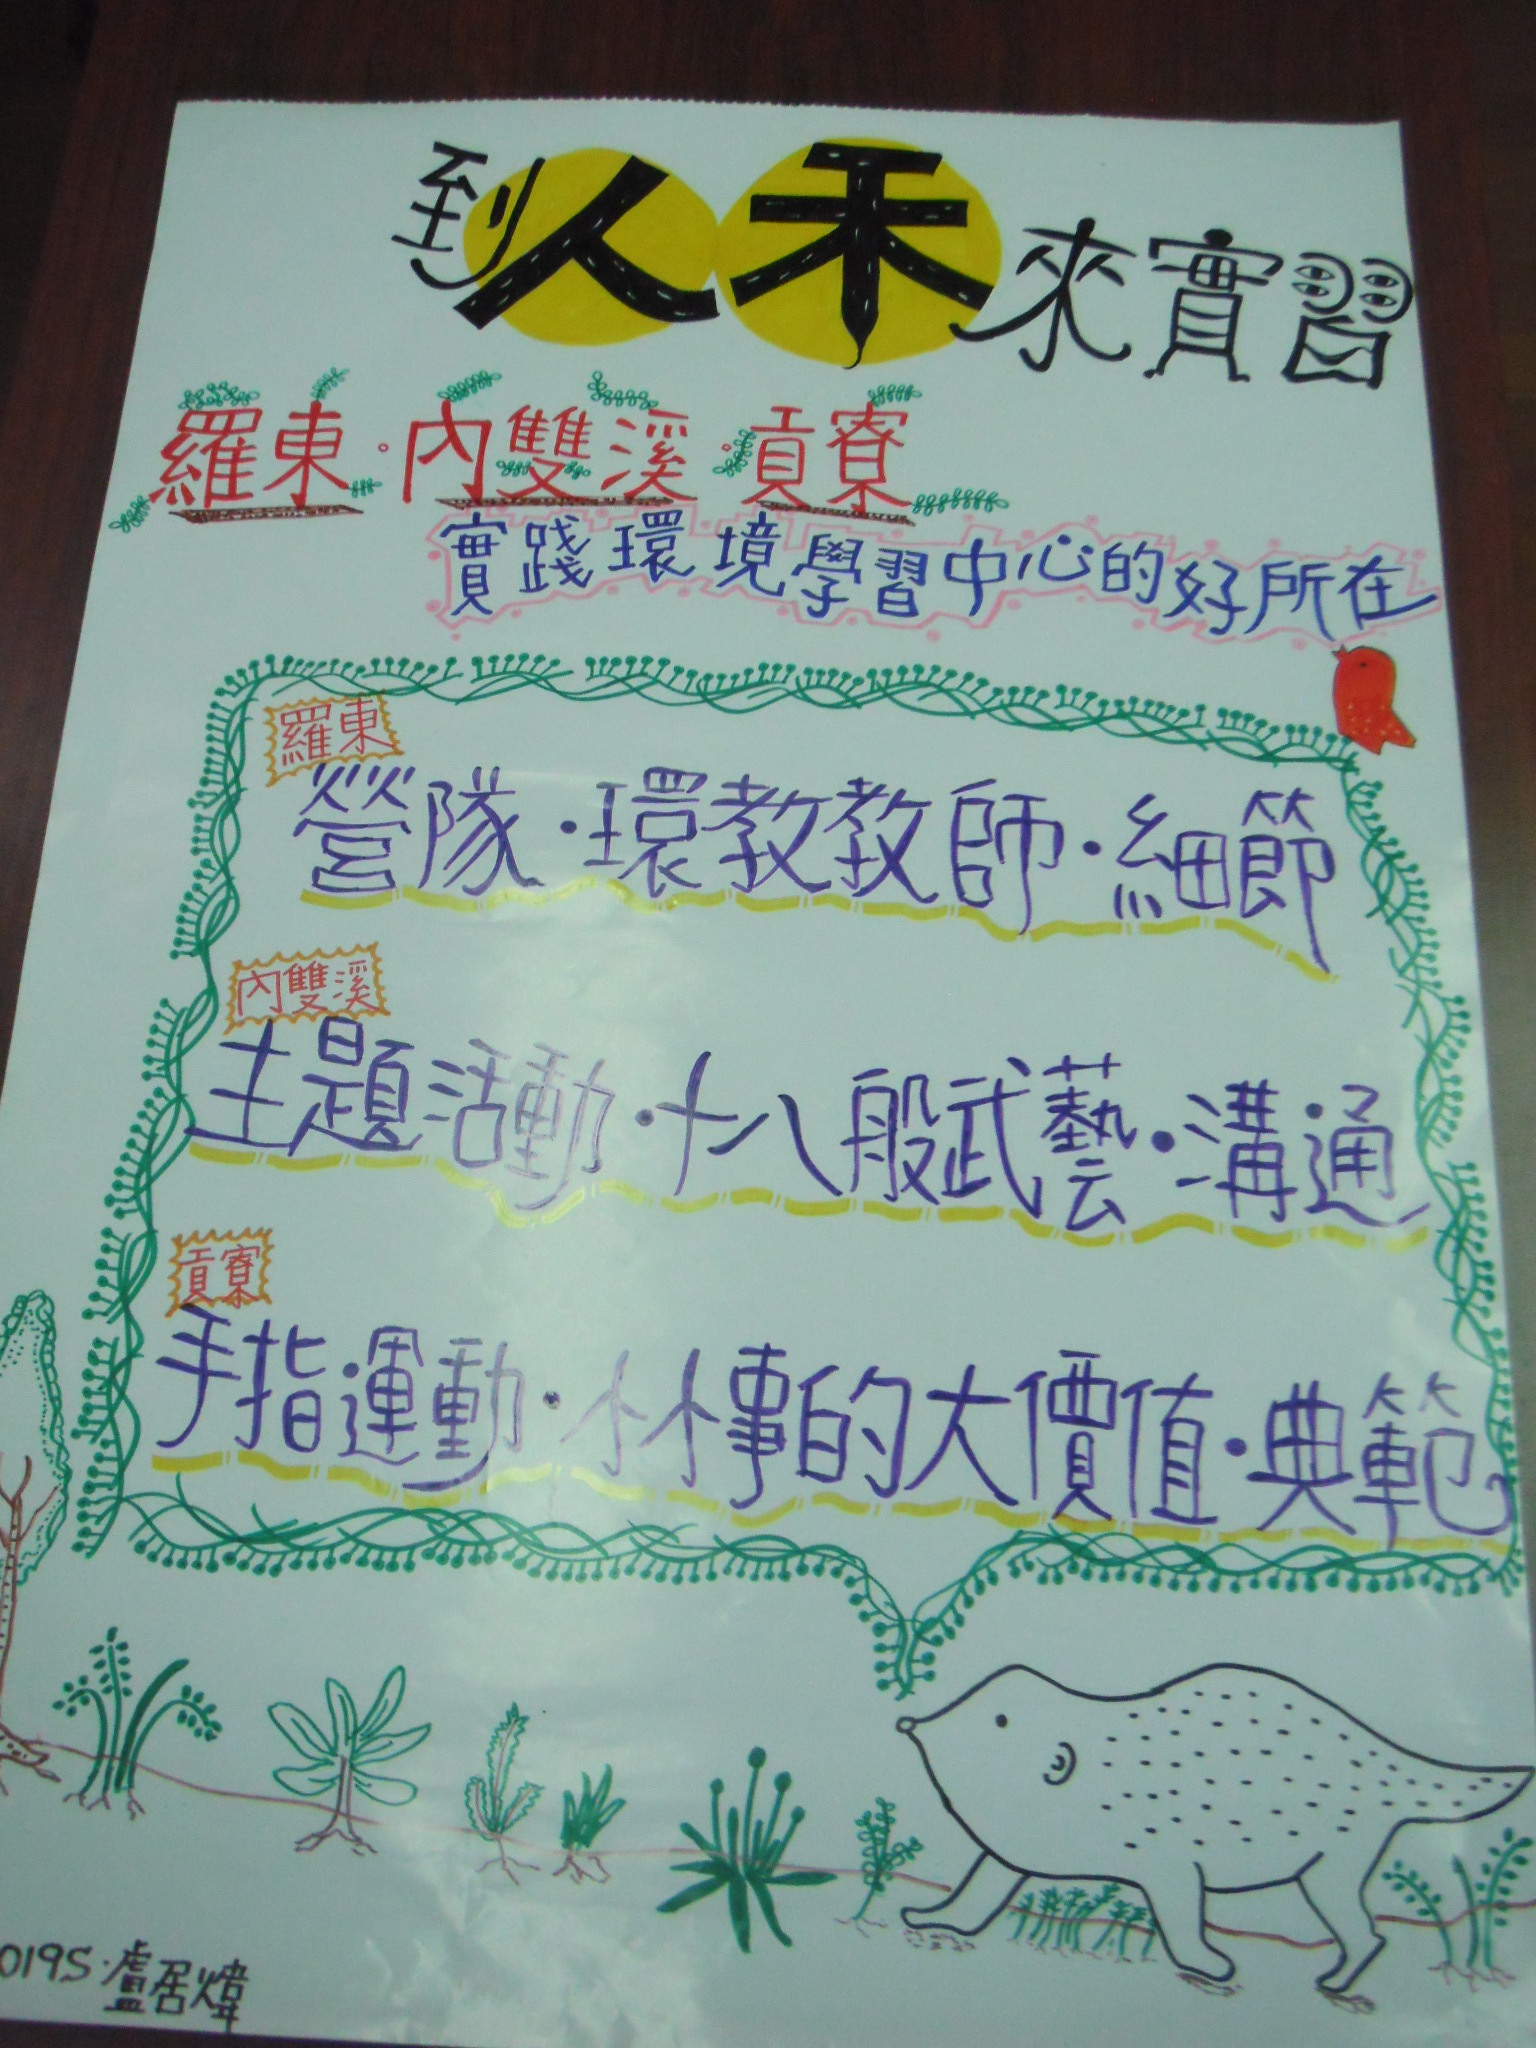 到人禾來實習
羅東·內雙溪·貢寮
實踐環境學習中心的好所在
羅東
營隊·環教教師·細節
內雙溪
主題活動·十八般武藝·溝通
貢寮
手指運動·小小事的大價值·典範
019S·盧居煒